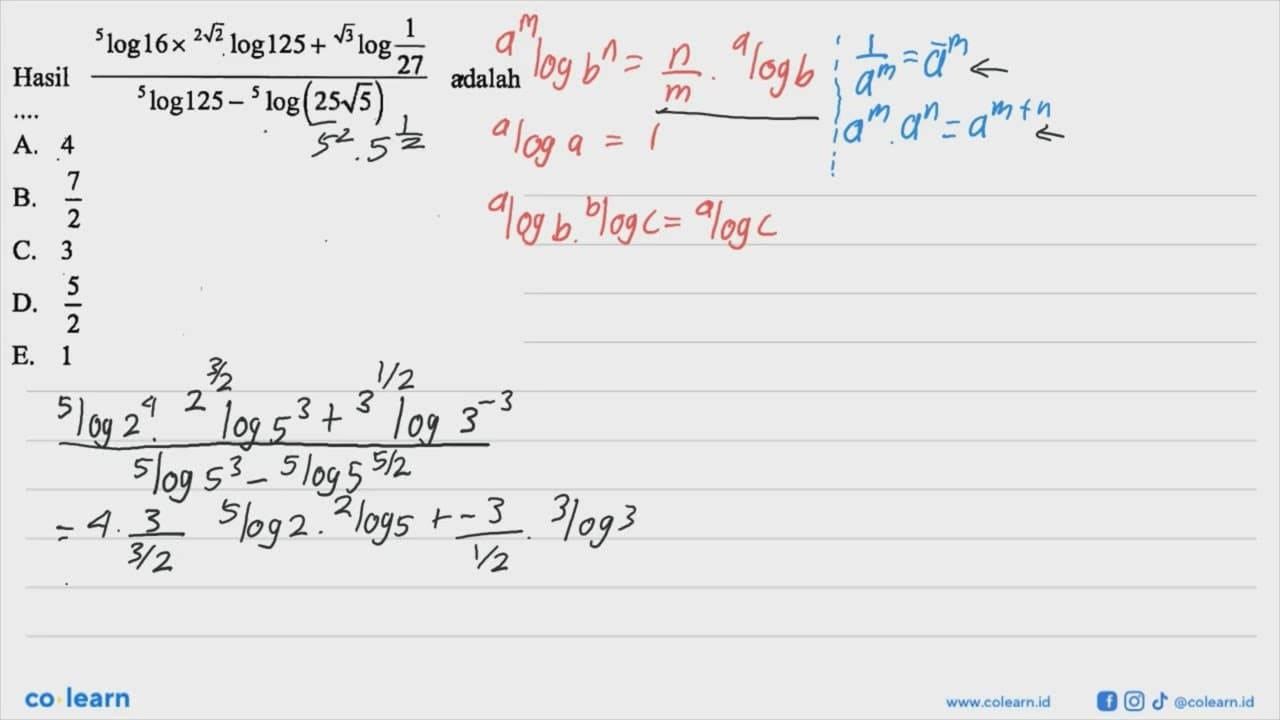 Hasil \frac{^5\log 16 \times {}^{2\sqrt{2}}\log 125 + {}^{\sqrt{3}}\log \frac{1}{27}}{^5\log 125 - {}^5\log (25\sqrt{5})} adalah
....
5^2 . 5^{\frac{1}{2}}
A. 4
B. \frac{7}{2}
C. 3
D. \frac{5}{2}
E. 1
^{a^m}\log b^n = \frac{n}{m} . {}^a\log b
^a\log a = 1
^a\log b . {}^b\log c = {}^a\log c
\frac{1}{a^m} = a^{-m} ←
a^m . a^n = a^{m+n} ←
\frac{^5\log 2^4 . {}^{2^{3/2}}\log 5^3 + {}^{3^{1/2}}\log 3^{-3}}{^5\log 5^3 - {}^5\log 5^{5/2}}
= 4 . \frac{3}{3/2} {}^5\log 2 . {}^2\log 5 + \frac{-3}{1/2} . {}^3\log 3
co·learn
www.colearn.id
@colearn.id